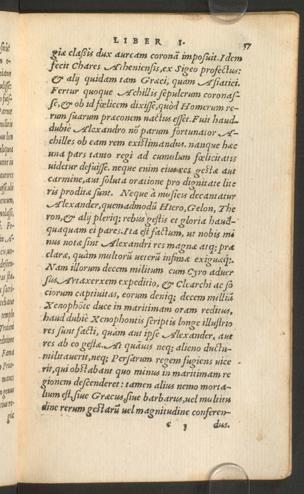 LIBER I. 57
giæ classis dux auream coronã imposuit. Idem
fecit Chares Atheniensis, ex Sigeo profectus:
& alij quidam tam Græci, quam Asiatici.
Fertur quoque Achillis sepulcrum coronas-
se, & ob id fœlicem dixisse, quòd Homerum re-
rum suarum præconem nactus esset. Fuit haud
dubie Alexandro nõ parum fortunatior A-
chilles ob eam rem existimandus. nanque hæc
una pars tanto regi ad cumulum fœlicitatis
videtur defuisse. neque enim eius res gestæ aut
carmine, aut soluta oratione pro dignitate lite
ris prodita sunt. Neque à musicis decantatur
Alexander, quemadmodũ Hiero, Gelon, The
ron, & alij pleriq; rebus gestis et gloria haud-
quaquam ei pares. Ita est factum, ut nobis mi
nus notæ sint Alexandri res magnæ atq; præ
claræ, quàm multorũ ueterũ infimæ exiguæq́;.
Nam illorum decem militum cum Cyro aduer
sus Artaxerxem expeditio, & Clearchi ac so
ciorum captiuitas, eorum deniq; decem milliũ
Xenophõte duce in maritimam oram reditus,
haud dubiè Xenophontis scriptis longe illustrio
res sunt facti, quàm aut ipse Alexander, aut
res ab eo gestæ. At quāuis neq; alieno ductu
militauerit, neq; Persarum regem fugiens uice
rit, qui obstabant quo minus in maritimam re
gionem descenderet: tamen alius nemo morta-
lium est, siue Græcus, siue barbarus, uel multitu
dine rerum gestarũ uel magnitudine conferen-
dus.